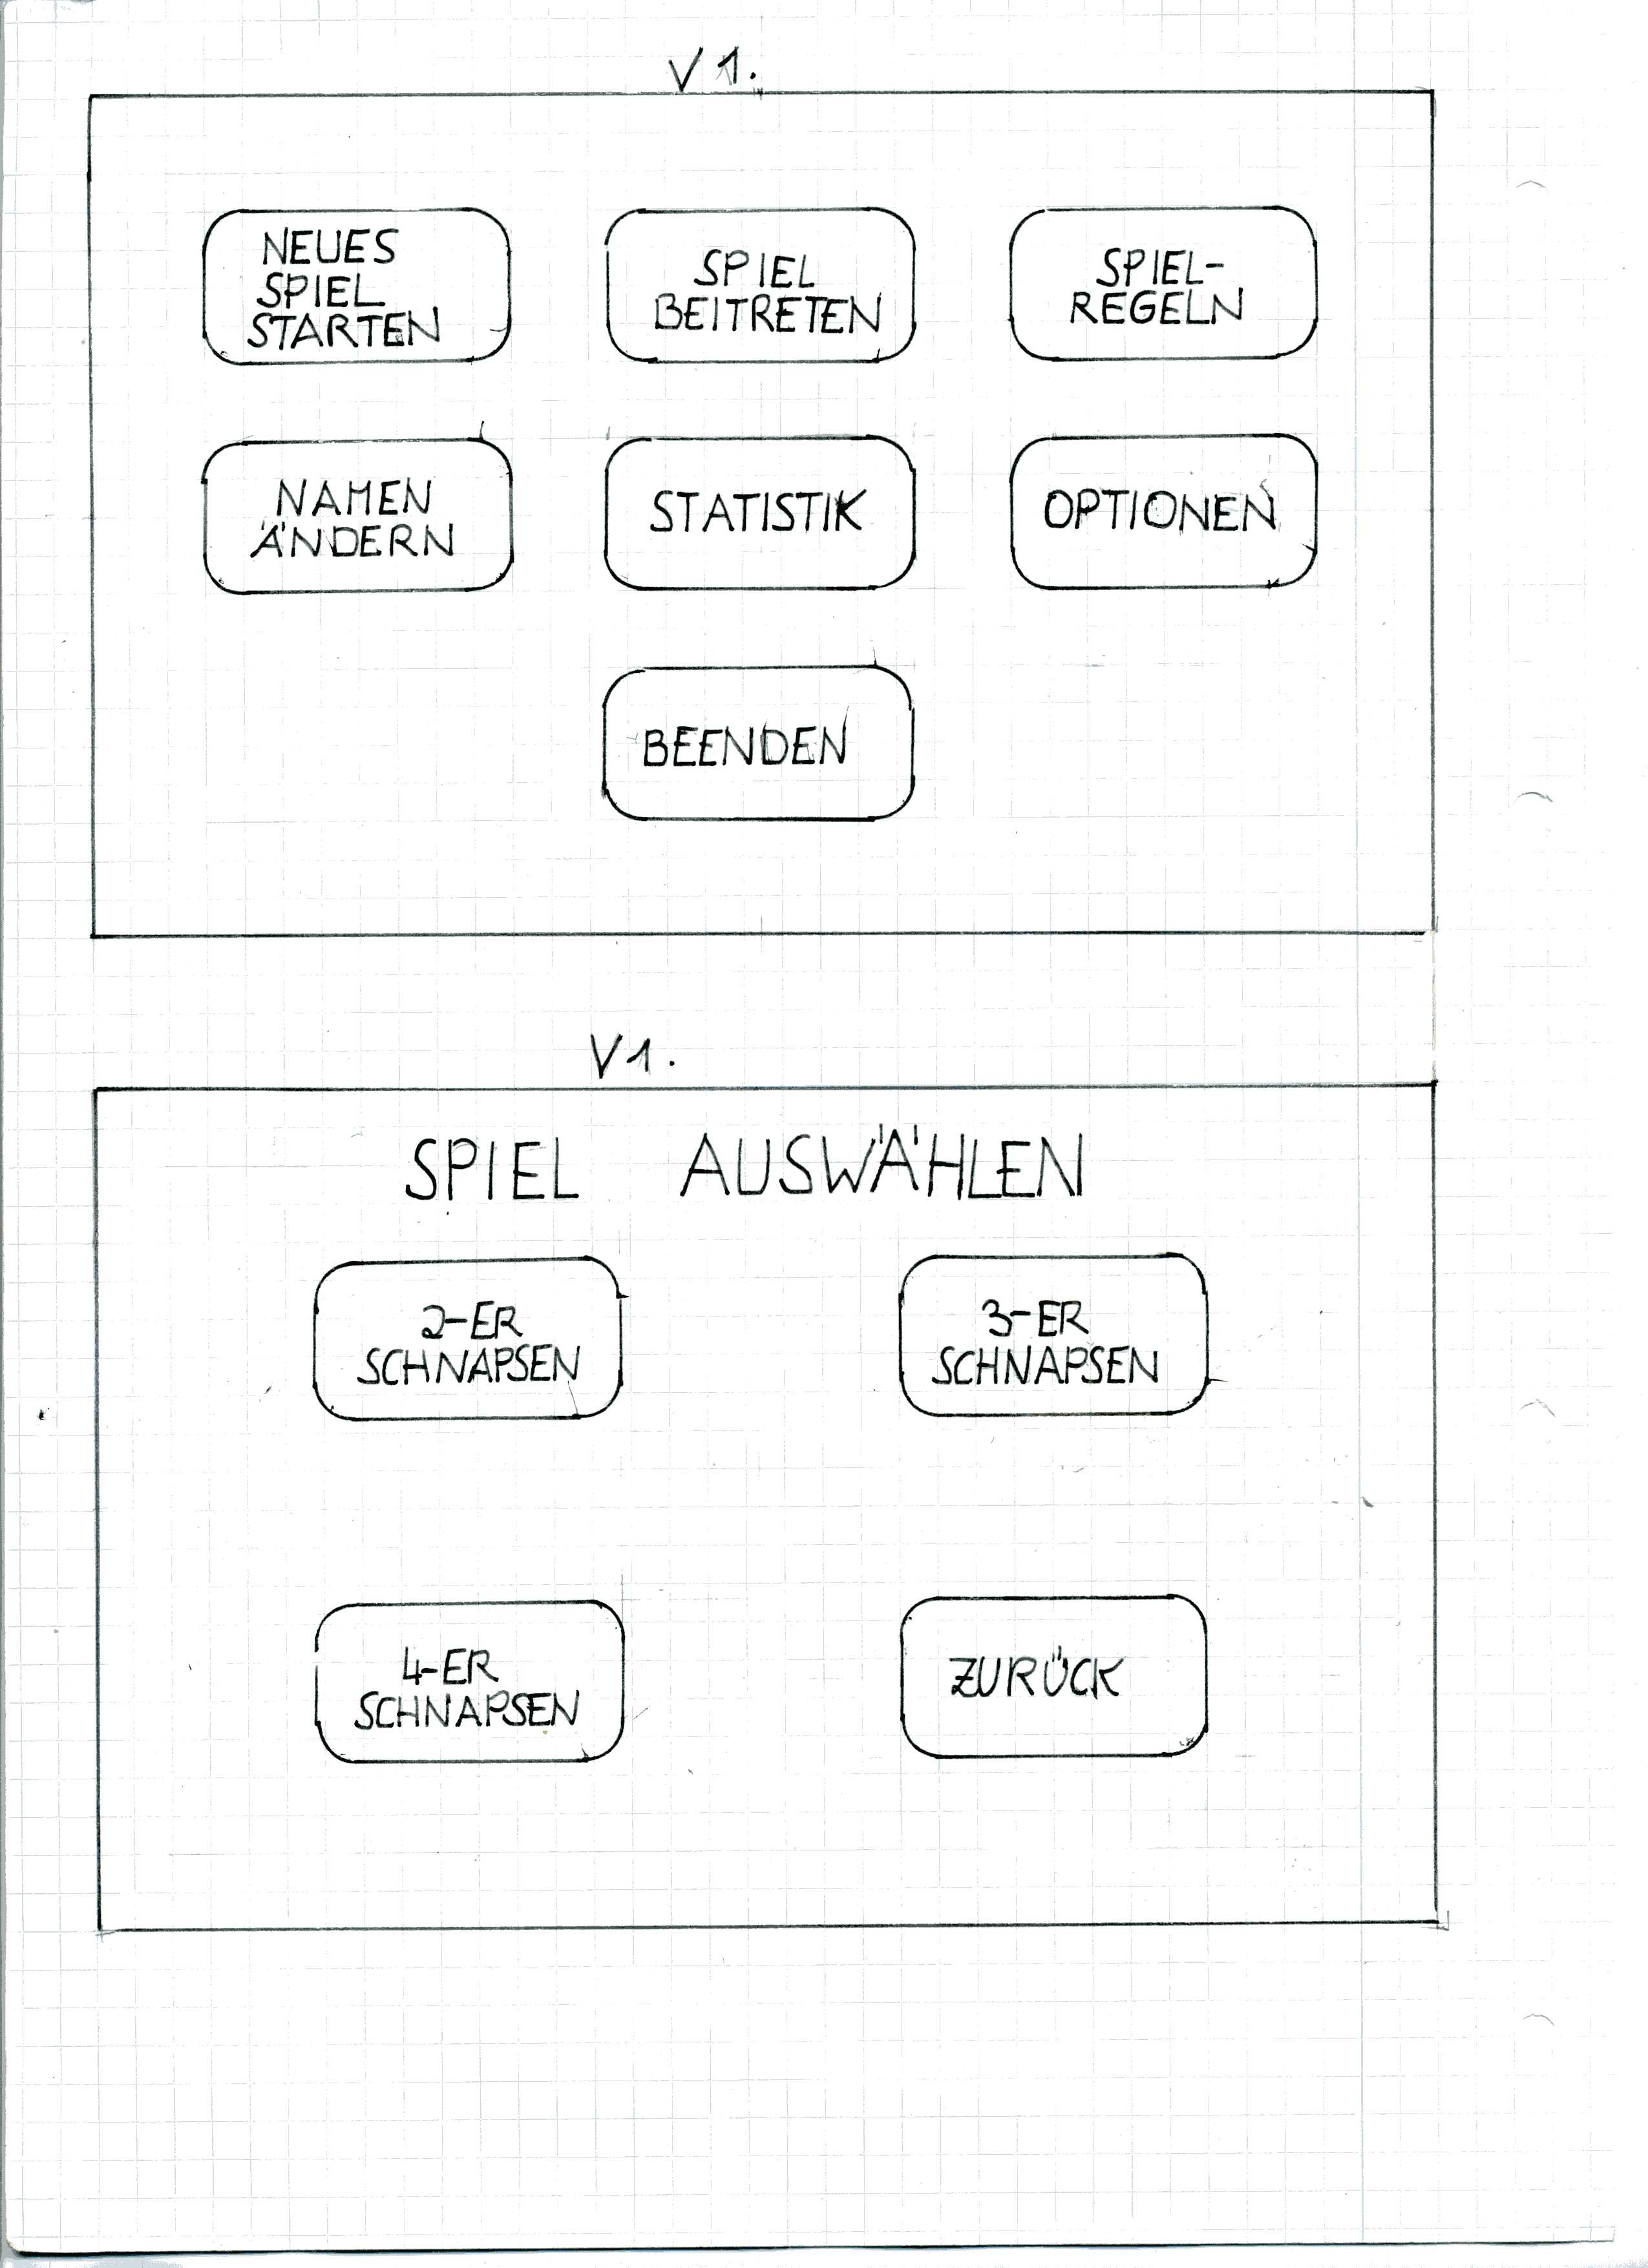 V1.
NEUES
SPIEL
STARTEN
SPIEL
BEITRETEN
SPIEL-
REGELN
NAMEN
ÄNDERN
STATISTIK
OPTIONEN
BEENDEN
V1.
SPIEL AUSWÄHLEN
2-ER
SCHNAPSEN
3-ER
SCHNAPSEN
4-ER
SCHNAPSEN
ZURÜCK